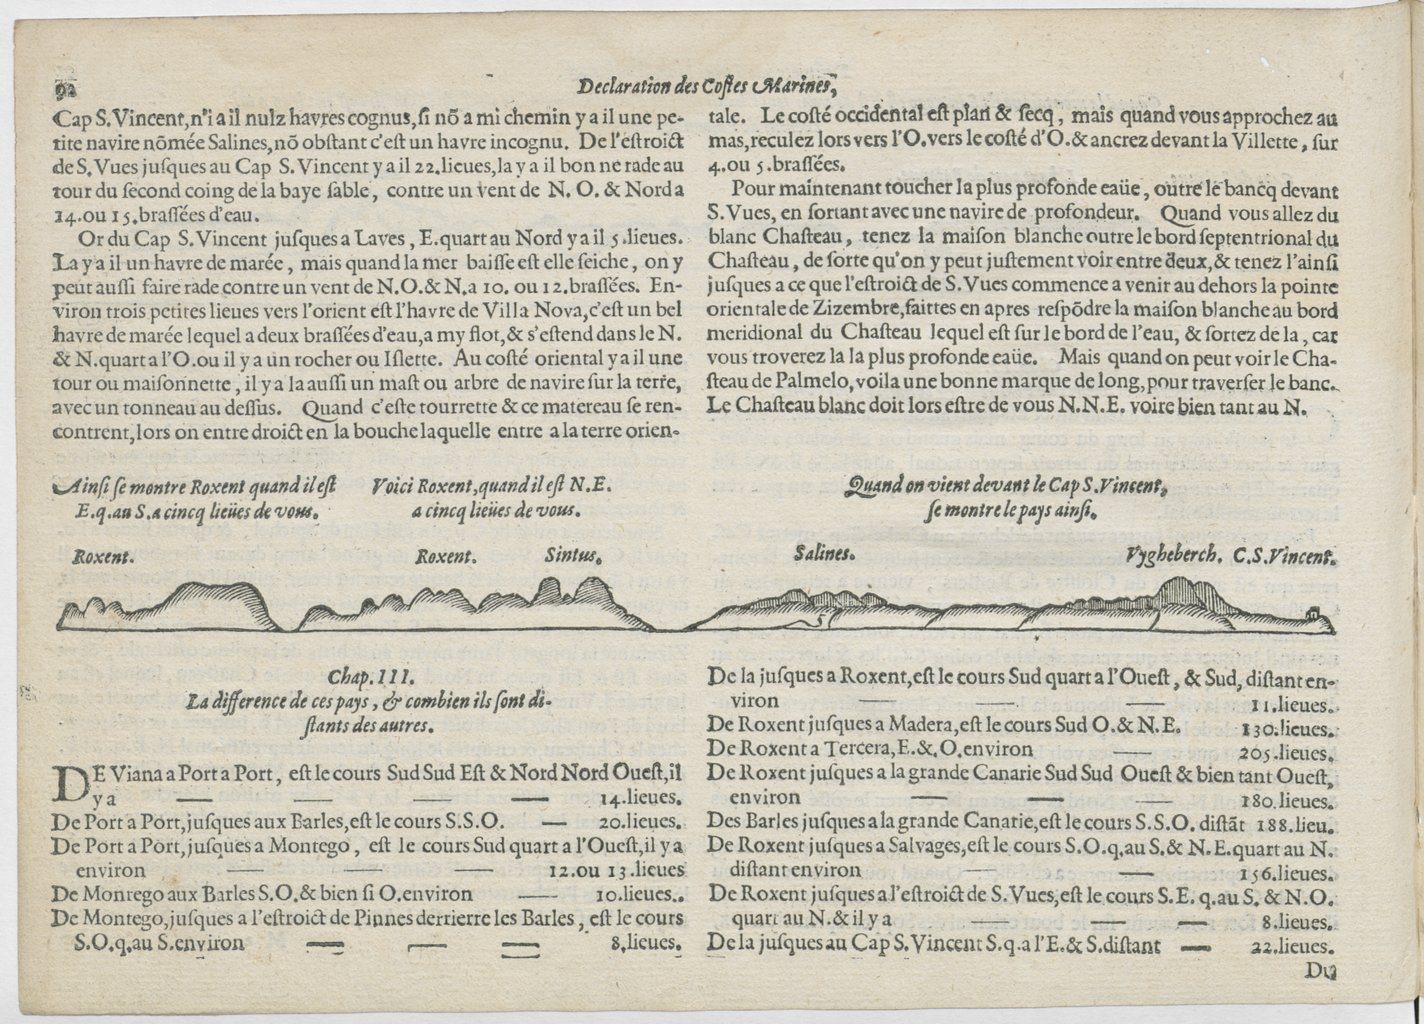 92
Declaration des Costes Marines,
Cap S. Vincent, n'i a il nulz havres cognus, si nõ a mi chemin y a il une pe-
tite navire nõmée Salines, nõ obstant c'est un havre incognu. De l'estroict
de S. Vues jusques au Cap S. Vincent y a il 22. lieues, la y a il bonne rade au
tour du second coing de la baye sable, contre un vent de N. O. & Nord a
14. ou 15. brassées d'eau.
Or du Cap S. Vincent jusques a Laves, E. quart au Nord y a il 5. lieues.
La y a il un havre de marée, mais quand la mer baisse est elle seiche, on y
peut aussi faire rade contre un vent de N.O. & N. a 10. ou 12. brassées. En-
viron trois petites lieues vers l'orient est l'havre de Villa Nova, c'est un bel
havre de marée lequel a deux brassées d'eau, a my flot, & s'estend dans le N.
& N. quart a l'O. ou il y a un rocher ou Islette. Au costé oriental y a il une
tour ou maisonnette, il y a la aussi un mast ou arbre de navire sur la terre,
avec un tonneau au dessus. Quand c'este tourrette & ce matereau se ren-
contrent, lors on entre droict en la bouche laquelle entre a la terre orien-
tale. Le costé occidental est plan & secq, mais quand vous approchez au
mas, reculez lors vers l'O. vers le costé d'O. & ancrez devant la Villette, sur
4. ou 5. brassées.
Pour maintenant toucher la plus profonde eaüe, outre le bancq devant
S. Vues, en sortant avec une navire de profondeur. Quand vous allez du
blanc Chasteau, tenez la maison blanche outre le bord septentrional du
Chasteau, de sorte qu'on y peut justement voir entre deux, & tenez l'ainsi
jusques a ce que l'estroict de S. Vues commence a venir au dehors la pointe
orientale de Zizembre, faittes en apres respõdre la maison blanche au bord
meridional du Chasteau lequel est sur le bord de l'eau, & sortez de la, car
vous troverez la la plus profonde eaüe. Mais quand on peut voir le Cha-
steau de Palmelo, voila une bonne marque de long, pour traverser le banc.
Le Chasteau blanc doit lors estre de vous N.N.E. voire bien tant au N.
Ainsi se montre Roxent quand il est
E.q. au S. a cinq lieües de vous.
Voici Roxent, quand il est N.E.
a cincq lieües de vous.
Quand on vient devant le Cap S. Vincent,
se montre le pays ainsi.
Roxent.
Roxent.
Sintus.
Salines.
Vygheberch.
C.S. Vincent.
Chap. III.
La difference de ces pays, & combien ils sont di-
stants des autres.
DE Viana a Port a Port, est le cours Sud Sud Est & Nord Nord Ouest, il
y a — — — — 14. lieues.
De Port a Port, jusques aux Barles, est le cours S.S.O. — 20. lieues.
De Port a Port, jusques a Montego, est le cours Sud quart a l'Ouest, il y a
environ — — — 12. ou 13. lieues
De Montego aux Barles S.O. & bien si O. environ — 10. lieues.
De Montego, jusques a l'estroict de Pinnes derrierre les Barles, est le cours
S.O.q. au S. environ — — — 8. lieues.
De la jusques a Roxent, est le cours Sud quart a l'Ouest, & Sud, distant en-
viron — — — 11. lieues.
De Roxent jusques a Madera, est le cours Sud O. & N.E. 130. lieues.
De Roxent a Tercera, E. & O. environ — 205. lieues.
De Roxent jusques a la grande Canarie Sud Sud Ouest & bien tant Ouest,
environ — — — 180. lieues.
Des Barles jusques a la grande Canarie, est le cours S.S.O. distãt 188. lieu.
De Roxent jusques a Salvages, est le cours S.O.q. au S. & N.E. quart au N.
distant environ — — 156. lieues.
De Roxent jusques a l'estroict de S. Vues, est le cours S.E. q. au S. & N.O.
quart au N. & il y a — — — 8. lieues.
De la jusques au Cap S. Vincent S.q. a l'E. & S. distant — 22. lieues.
Du